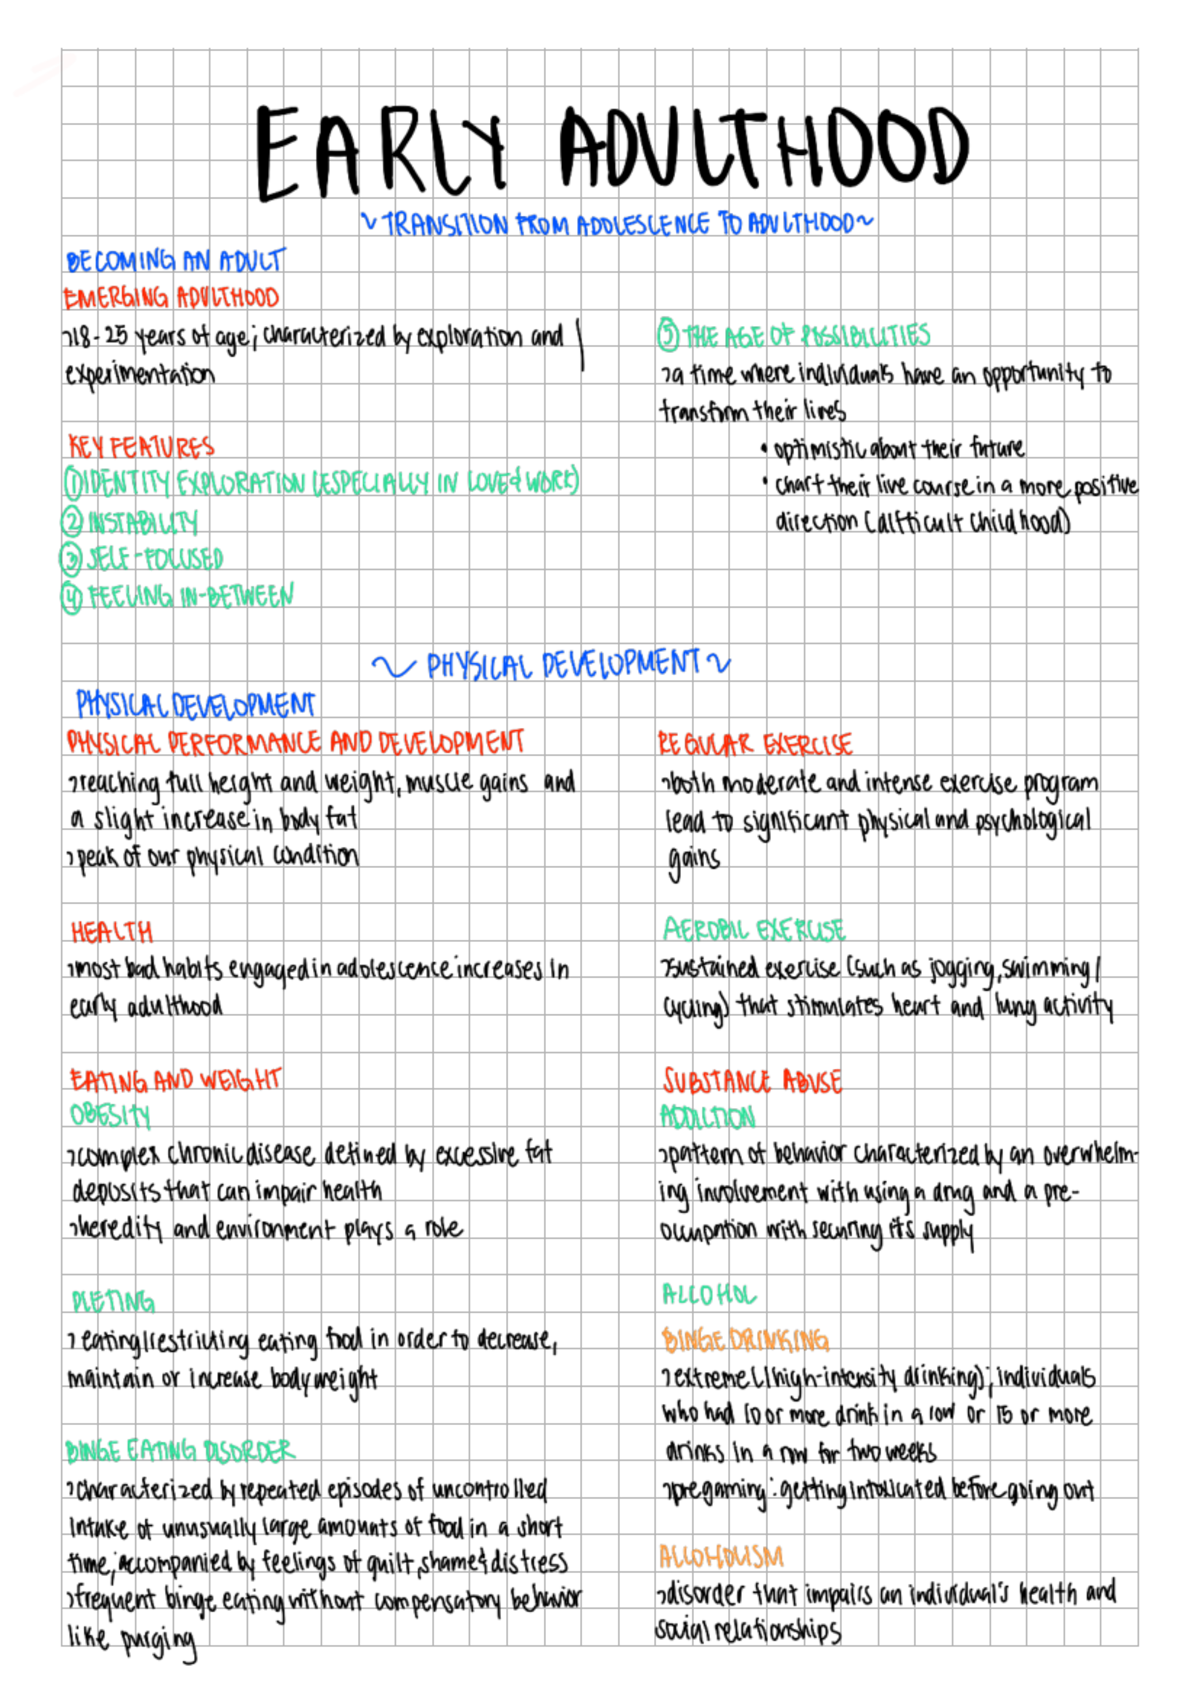 EARLY ADULTHOOD
~ TRANSITION FROM ADOLESCENCE TO ADULTHOOD ~
BECOMING AN ADULT
EMERGING ADULTHOOD
>18-25 years of age; characterized by exploration and
experimentation
KEY FEATURES
① IDENTITY EXPLORATION (ESPECIALLY IN LOVE & WORK)
② INSTABILITY
③ SELF-FOCUSED
④ FEELING IN-BETWEEN
⑤ THE AGE OF POSSIBILITIES
>a time where individuals have an opportunity to
transfrm their lives
• optimistic about their future
• chart their live course in a more positive
direction (difficult childhood)
~ PHYSICAL DEVELOPMENT ~
PHYSICAL DEVELOPMENT
PHYSICAL PERFORMANCE AND DEVELOPMENT
>reaching full height and weight, muscle gains and
a slight increase in body fat
>peak of our physical condition
HEALTH
>most bad habits engaged in adolescence increases in
early adulthood
EATING AND WEIGHT
OBESITY
>complex chronic disease defined by excessive fat
deposits that can impair health
>heredity and environment plays a role
DIETING
>eating/restricting eating food in order to decrease,
maintain or increase body weight
BINGE EATING DISORDER
>characterized by repeated episodes of uncontrolled
intake of unusually large amounts of food in a short
time; accompanied by feelings of guilt, shame & distress
>frequent binge eating without compensatory behavior
like purging
REGULAR EXERCISE
>both moderate and intense exercise program
lead to significant physical and psychological
gains
AEROBIC EXERCISE
>sustained exercise (such as jogging, swimming/
cycling) that stimulates heart and lung activity
SUBSTANCE ABUSE
ADDICTION
>pattern of behavior characterized by an overwhelm-
ing involvement with using a drug and a pre-
occupation with securing it's supply
ALCOHOL
BINGE DRINKING
>extreme (/high-intensity drinking); individuals
who had 10 or more drink in a row or 15 or more
drinks in a row for two weeks
>pregaming: getting intoxicated before going out
ALCOHOLISM
>disorder that impairs an individual's health and
social relationships